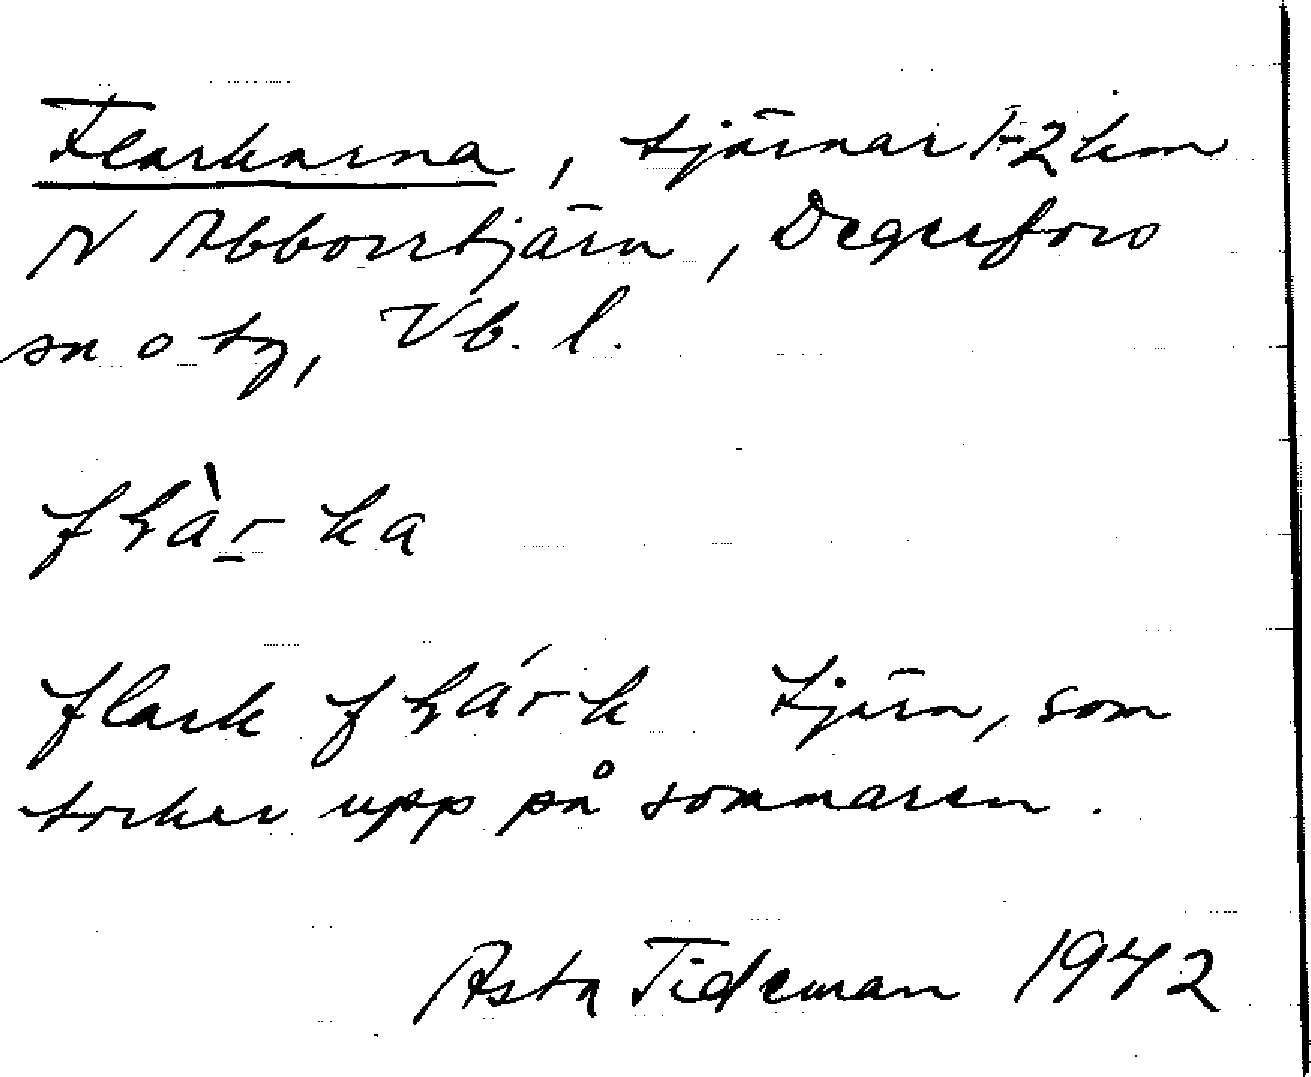 Flarkarna, tjärnar 1-2 km
N Abborrtjärn, Degerfors
sn o tg, Vb. l.
fɫàr̲ka
flark fɫárk tjärn, som
torkar upp på sommaren.
Asta Tideman 1942